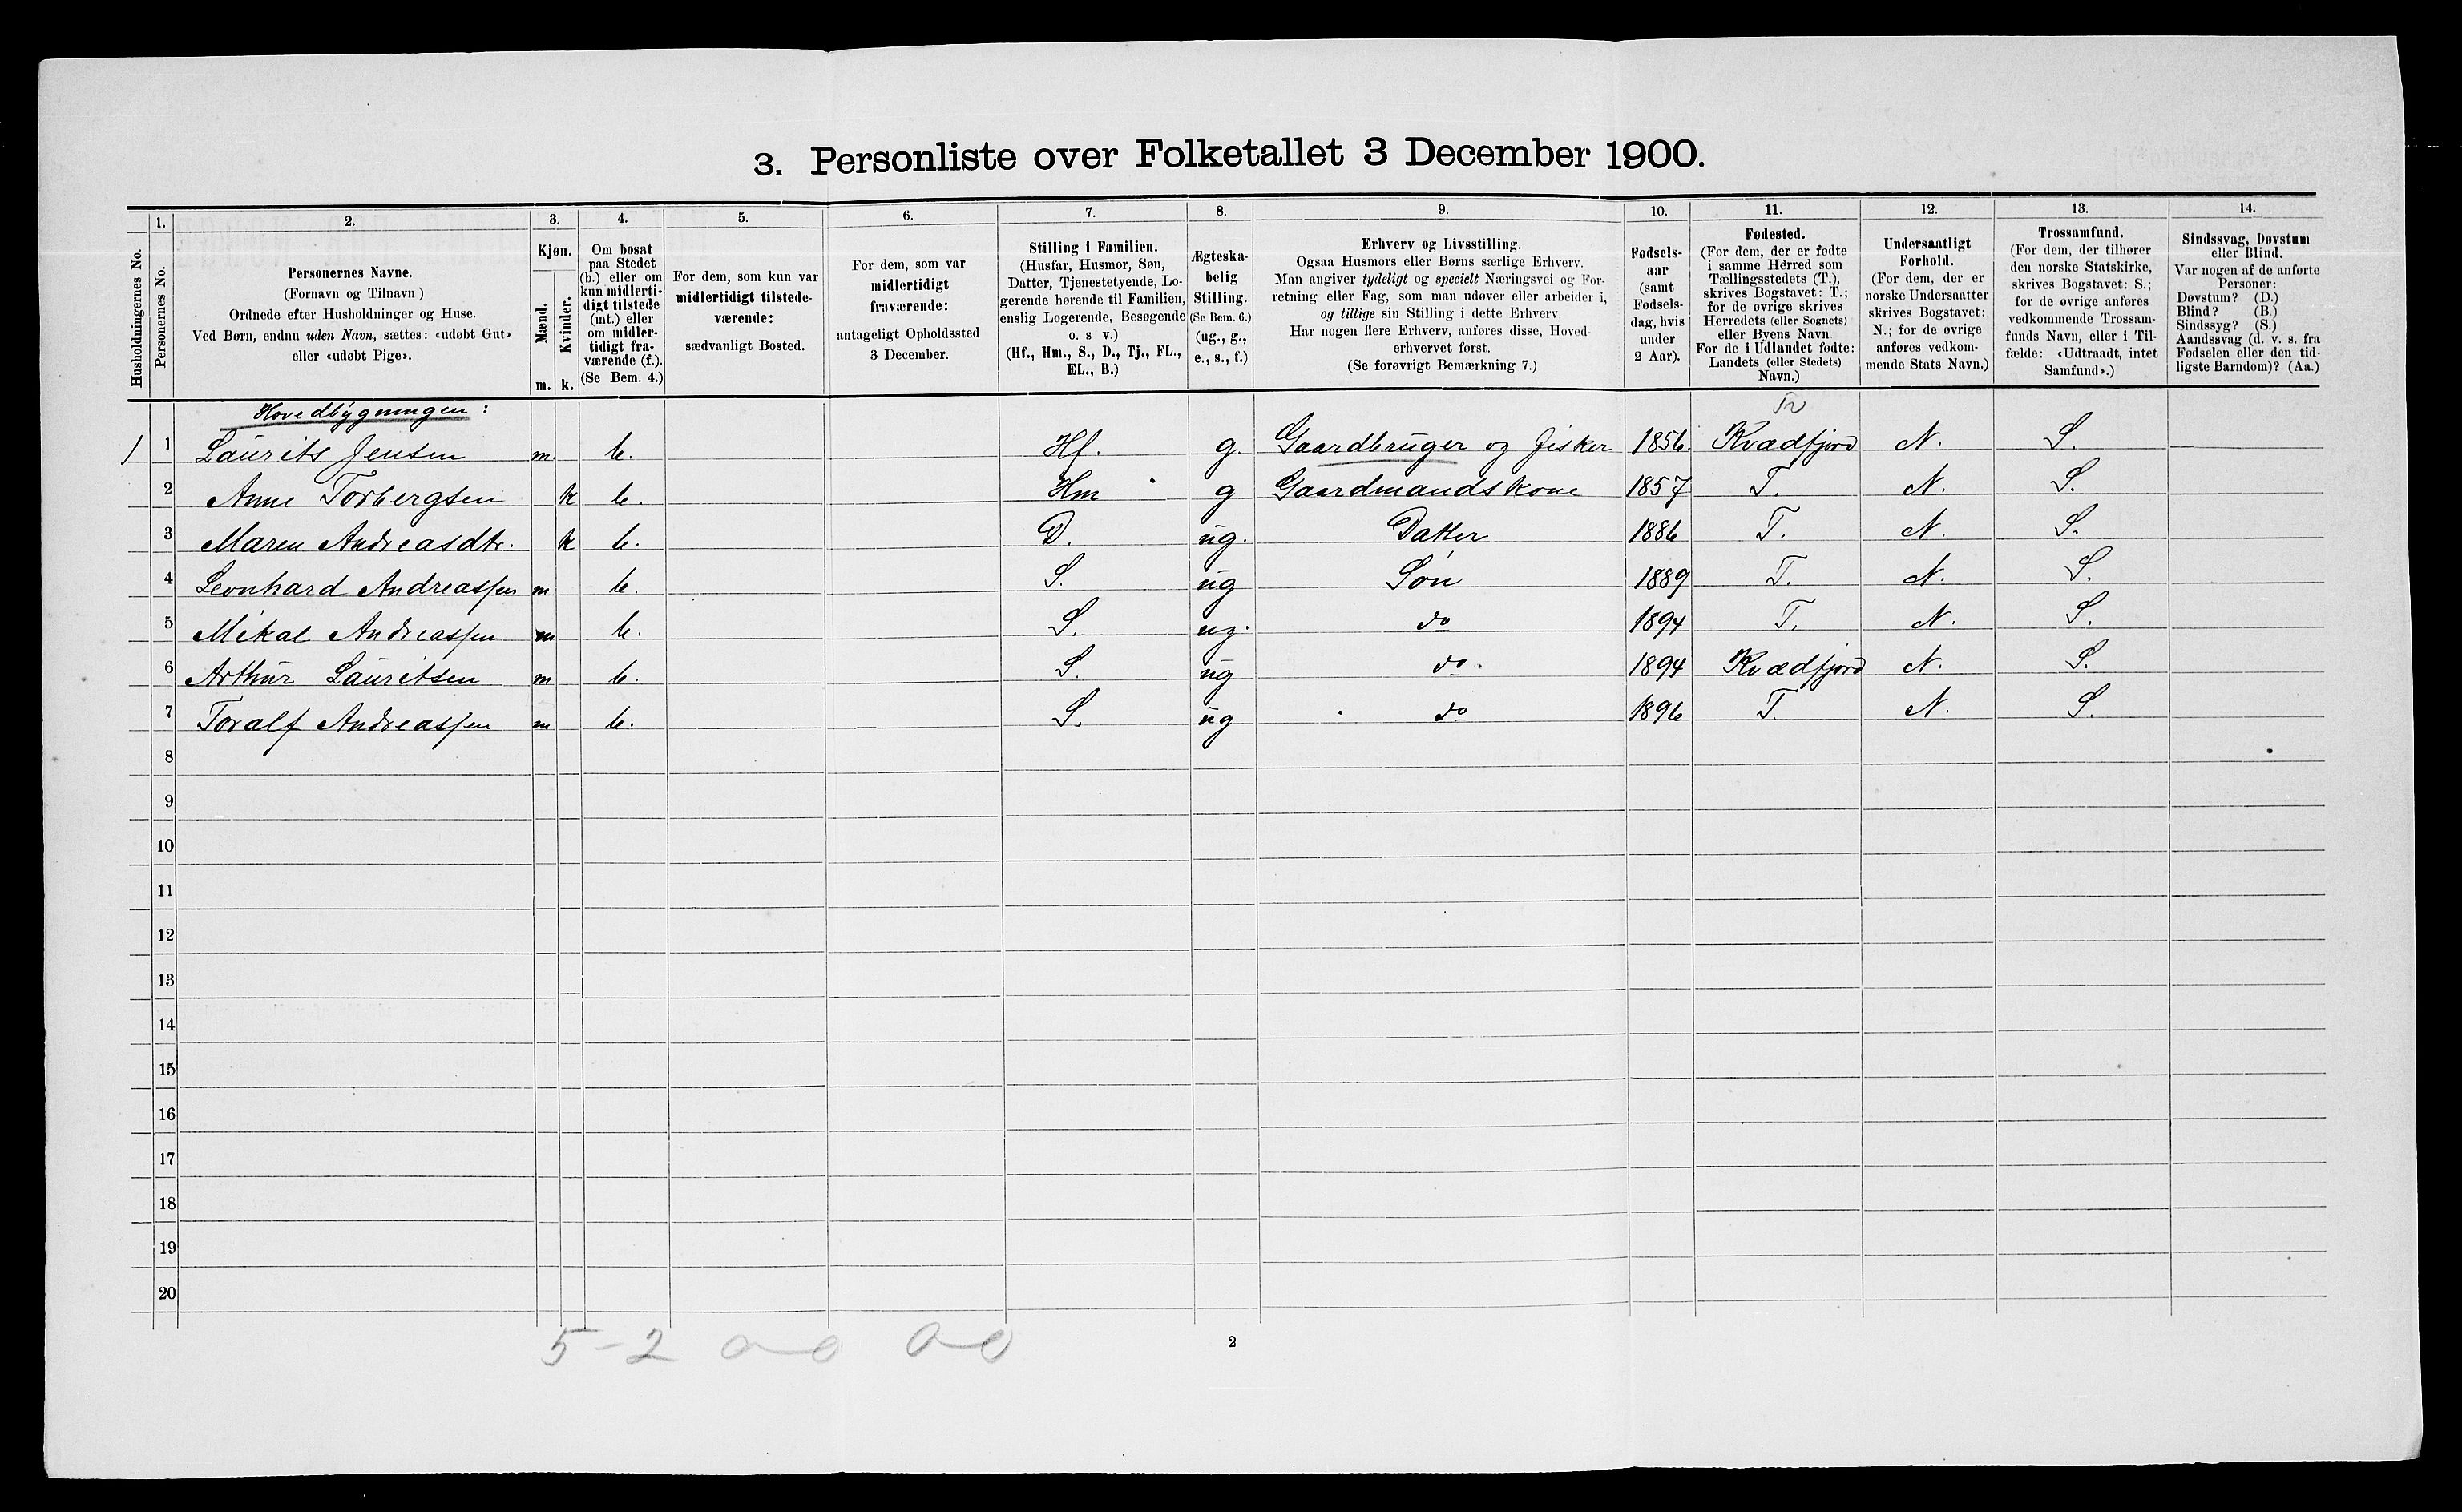 3. Personliste over Folketallet 3 December 1900.
Husholdningernes No.
1.
Personernes No.
2.
Personernes Navne.
(Fornavn og Tilnavn)
Ordnede efter Husholdninger og Huse.
Ved Børn, endnu uden Navn, sættes: «udøbt Gut»
eller «udøbt Pige».
3.
Kjøn.
Mænd.
Kvinder.
m. k.
4.
Om bosat
paa Stedet
(b.) eller om
kun midlerti-
digt tilstede
(mt.) eller
om midler-
tidigt fra-
værende (f.).
(Se Bem. 4.)
5.
For dem, som kun var
midlertidigt tilstede-
værende:
sædvanligt Bosted.
6.
For dem, som var
midlertidigt
fraværende:
antageligt Opholdssted
3 December.
7.
Stilling i Familien.
(Husfar, Husmor, Søn,
Datter, Tjenestetyende, Lo-
gerende hørende til Familien,
enslig Logerende, Besøgende
o. s v.)
(Hf., Hm., S., D., Tj., FL.,
EL., B.)
8.
Ægteska-
belig
Stilling.
(Se Bem. 6.)
(ug., g.,
e., s., f.)
9.
Erhverv og Livsstilling.
Ogsaa Husmors eller Børns særlige Erhverv.
Man angiver tydeligt og specielt Næringsvei og For-
retning eller Fag, som man udøver eller arbeider i,
og tillige sin Stilling i dette Erhverv.
Har nogen flere Erhverv, anføres disse, Hoved-
erhvervet først.
(Se forøvrigt Bemærkning 7.)
10.
Fødsels-
aar
(samt
Fødsels-
dag, hvis
under
2 Aar).
11.
Fødested.
(For dem, der er fødte
i samme Herred som
Tællingsstedets (T.),
skrives Bogstavet: T.;
for de øvrige skrives
Herredets (eller Sognets)
eller Byens Navn.
For de i Udlandet fødte:
Landets (eller Stedets)
Navn.)
12.
Undersaatligt
Forhold.
(For dem, der er
norske Undersaatter
skrives Bogstavet:
N.; for de øvrige
anføres vedkom-
mende Stats Navn.)
13.
Trossamfund.
(For dem, der tilhører
den norske Statskirke,
skrives Bogstavet: S.;
for de øvrige anføres
vedkommende Trossam-
funds Navn, eller i Til-
fælde: «Udtraadt, intet
Samfund».)
14.
Sindssvag, Døvstum
eller Blind.
Var nogen af de anførte
Personer:
Døvstum? (D.)
Blind? (B.)
Sindssyg? (S.)
Aandssvag (d. v. s. fra
Fødselen eller den tid-
ligste Barndom)? (Aa.)
Hovedbygningen:
1 1 Laurits Jensen m b. Hf. g. Gaardbruger og fisker 1856. Kvædfjord N. S.
2 Anne Torbergsen k b. Hm g Gaardmandskone 1857 T. N. S.
3 Maren Andreasdtr. k b. D. ug. Datter 1886 T. N. S.
4 Leonhard Andreassen m b. S. ug Søn 1889 T. N. S.
5 Mikal Andreassen m b. S. ug. do 1894 T. N. S.
6 Arthur Lauritsen m b. S. ug do. 1894 Kvædfjord N. S.
7 Toralf Andreassen m b. S. ug do 1896 T. N. S.
8
9
10
11
12
13
14
15
16
17
18
19
20
5-2 0-0 0-0
2